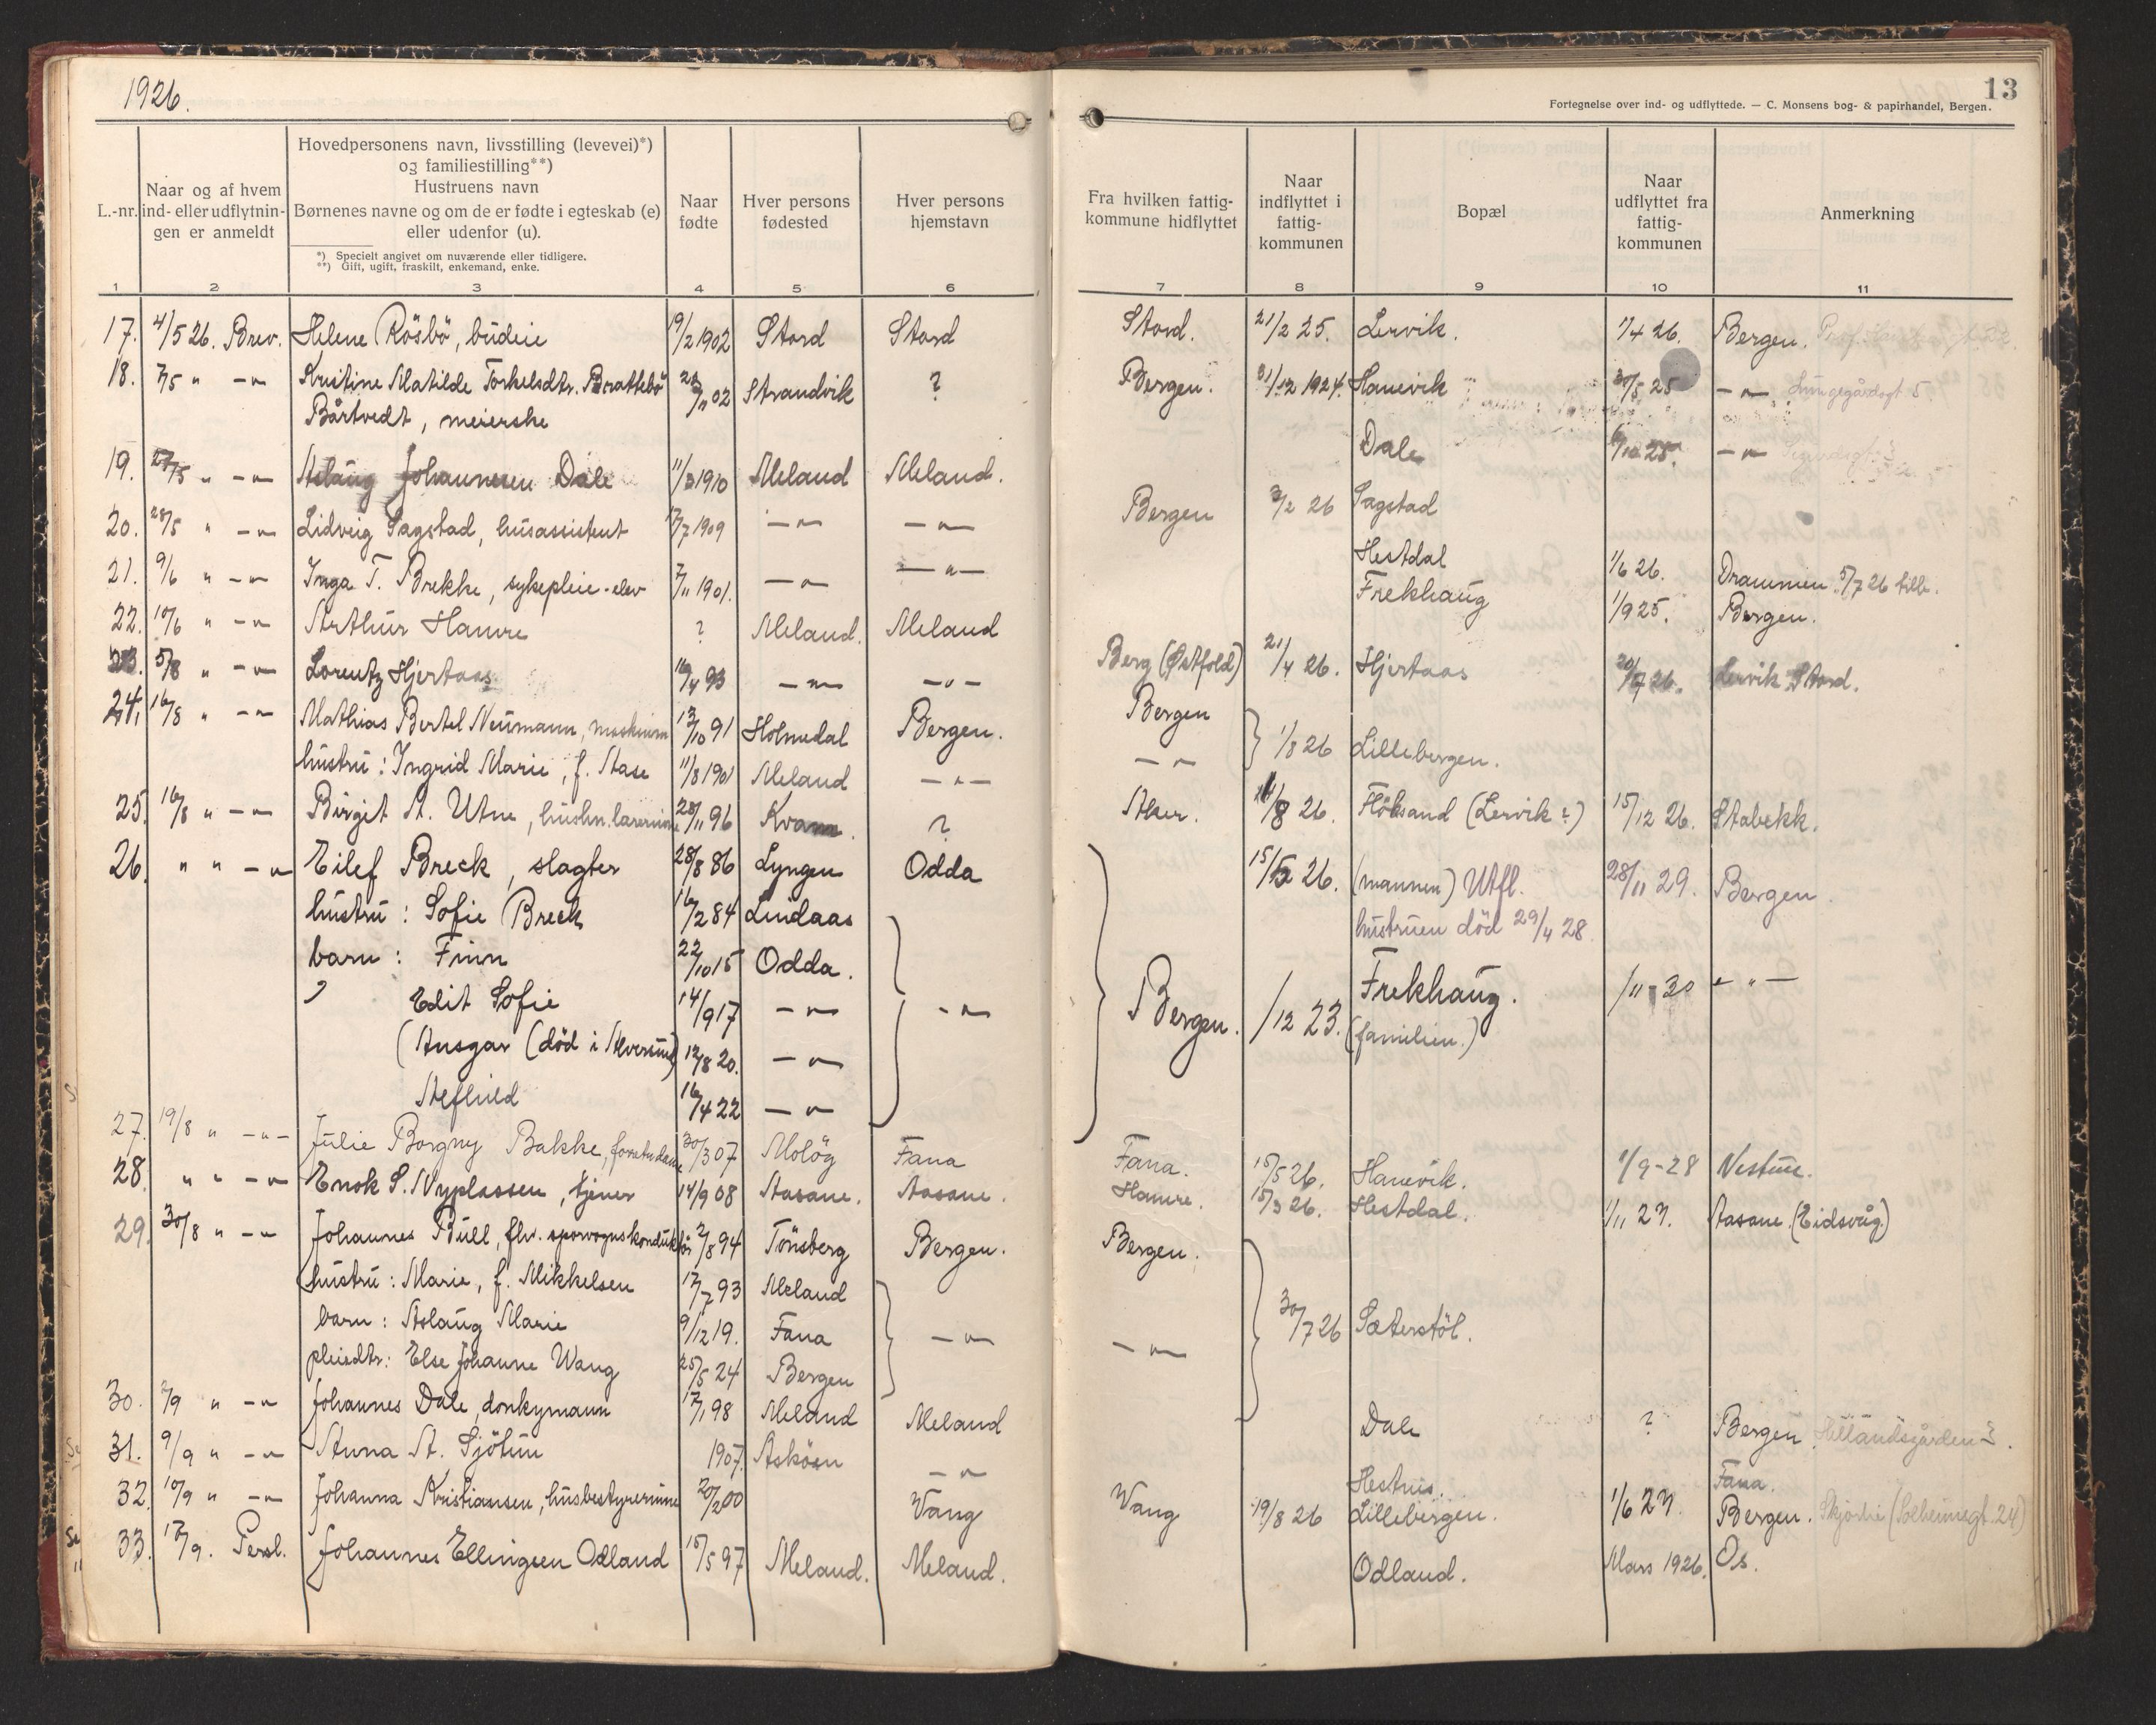 1926.
13
Fortegnelse over ind- og udflyttede. — C. Monsens bog- & papirhandel, Bergen.
L.-nr.
Naar og af hvem ind- eller udflytnin-gen er anmeldt
Hovedpersonens navn, livsstilling (levevei)*)
og familiestilling**)
Hustruens navn
Børnenes navne og om de er fødte i egteskab (e)
eller udenfor (u).
*) Specielt angivet om nuværende eller tidligere.
**) Gift, ugift, fraskilt, enkemand, enke.
Naar fødte
Hver persons fødested
Hver persons hjemstavn
Fra hvilken fattig-kommune hidflyttet
Naar indflyttet i fattig-kommunen
Bopæl
Naar udflyttet fra fattig-kommunen
Anmerkning
1 2 3 4 5 6 7 8 9 10 11
17. 4/5 26. Brev. Helene Rösbö, budeie 19/2 1902 Stord Stord Stord. 21/2 25. Lervik. 1/4 26. Bergen.
18. 7/5 " -"- Kristine Matilde Torkelsdtr. Brattebö /11 02 Strandvik ? Bergen. 31/12 1924. Hanevik 30/5 25 -"- Lungegårdsgt 5.
Bårtvedt, meierske
19. 27/5 " -"- Aslaug Johannesen Dale 11/3 1910 Meland Meland. Dale /10 25. -"-
20. 28/5 " -"- Lidveig Sagstad, husassistent 17/7 1909 -"- -"- Bergen 3/2 26 Sagstad
21. 9/6 " -"- Inga T. Brekke, sykepleie-elev 7/11 1901. -"- -"- Hestdal 1/6 26. Drammen. 5/7 26 tilb.
22. 10/6 " -"- Arthur Hamre ? Meland. Meland Frekhaug 1/9 25. Bergen.
23. 5/8 " -"- Lorentz Hjertaas 16/4 93 -"- -"- Berg (Østfold) 21/4 26. Hjertaas 20/7 26. Lervik Stord.
24. 16/8 " -"- Mathias Bertel Neumann, maskinm 13/10 91 Holmedal Bergen. Bergen
hustru: Ingrid Marie, f. Aase 11/8 1901 Meland -"- -"- 1/8 26 Lillebergen.
25. 16/8 " -"- Birget A. Utne, hushn.lærerinne 28/11 96 Kvam. ? Aker. /8 26. Flöksand (Lervik?) 15/12 26. Stabekk.
26. " " -"- Eilef Breck, slagter 28/8 86 Lyngen Odda 15/5 26. (mannen) Utfl. 28/11 29. Bergen.
hustru: Sofie Breck 16/2 84 Lindaas hustruen död 29/4 28.
barn: Finn 22/10 15 Odda.
" Edit Sofie 14/9 17 -"- -"- Bergen. /12 23. Frekhaug. /11-30 -"-
(Ansgar (död i Alversund) 12/8 20. -"- (familien.)
Aefhild 16/4 22 -"-
27. 19/8 " -"- Julie Borgny Bakke, 30/3 07 Molög Fana Fana. 15/5 26. Hanevik. 1/9-28 Nestun.
28. " " -"- Enok S. Nyplassen, tjener 14/9 08 Aasane. Aasane. Hamre. 15/3 26. Hestdal. 1/11 27. Aasane. (Eidsvåg.)
29. 30/8 " -"- Johannes Bull, fhv. sporvognskonduktör 2/8 94 Tönsberg Bergen. Bergen.
hustru: Marie, f. Mikkelsen 17/7 93 Meland
barn: Aslaug Marie 9/12 19. Fana -"- -"- 30/7 26 Sæterstöl.
pleiedtr: Else Johanne Wang 25/5 24 Bergen
30. 2/9 " -"- Johannes Dale, donkymann 17/1 98 Meland Meland Dale ? Bergen.
31. 9/9 " -"- Anna A. Sjötun 1907. Asköen -"- Hestnes. Fana.
32. 10/9 " -"- Johanna Kristiansen, husbestyrerinne 20/2 00 Wang Wang 19/8 26 Lillebergen. 1/6 27. Bergen. (Solheimsgt. 24)
33. 17/9. Persl. Johannes Ellingsen Odland 15/5 97 Meland. Meland. Odland. Mars 1926. Os.